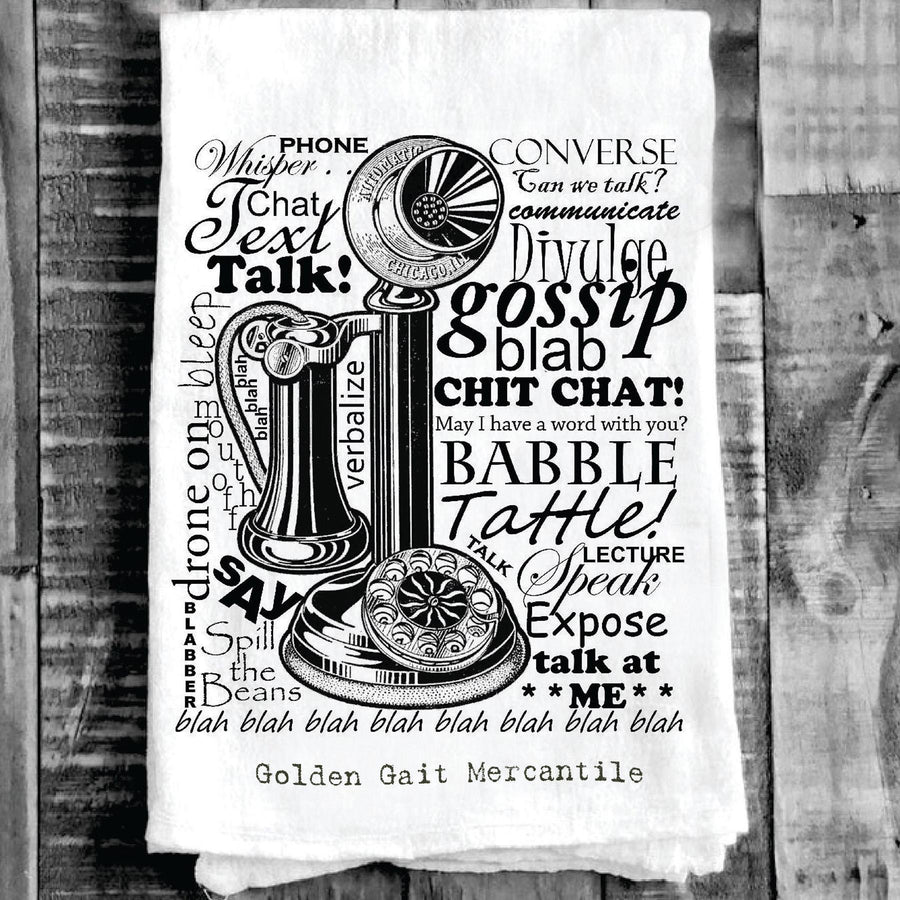 PHONE
Whisper . .
Chat
Text
Talk!
AUTOMATIC
CHICAGO, ILL
CONVERSE
Can we talk?
communicate
Divulge
gossip
blab
CHIT CHAT!
May I have a word with you?
BABBLE
Tattle!
TALK
LECTURE
Speak
Expose
talk at
**ME**
bleep
blah blah blah
mouth off
verbalize
drone on
SAY
BLABBER
Spill
the
Beans
blah blah blah blah blah blah blah blah
Golden Gait Mercantile